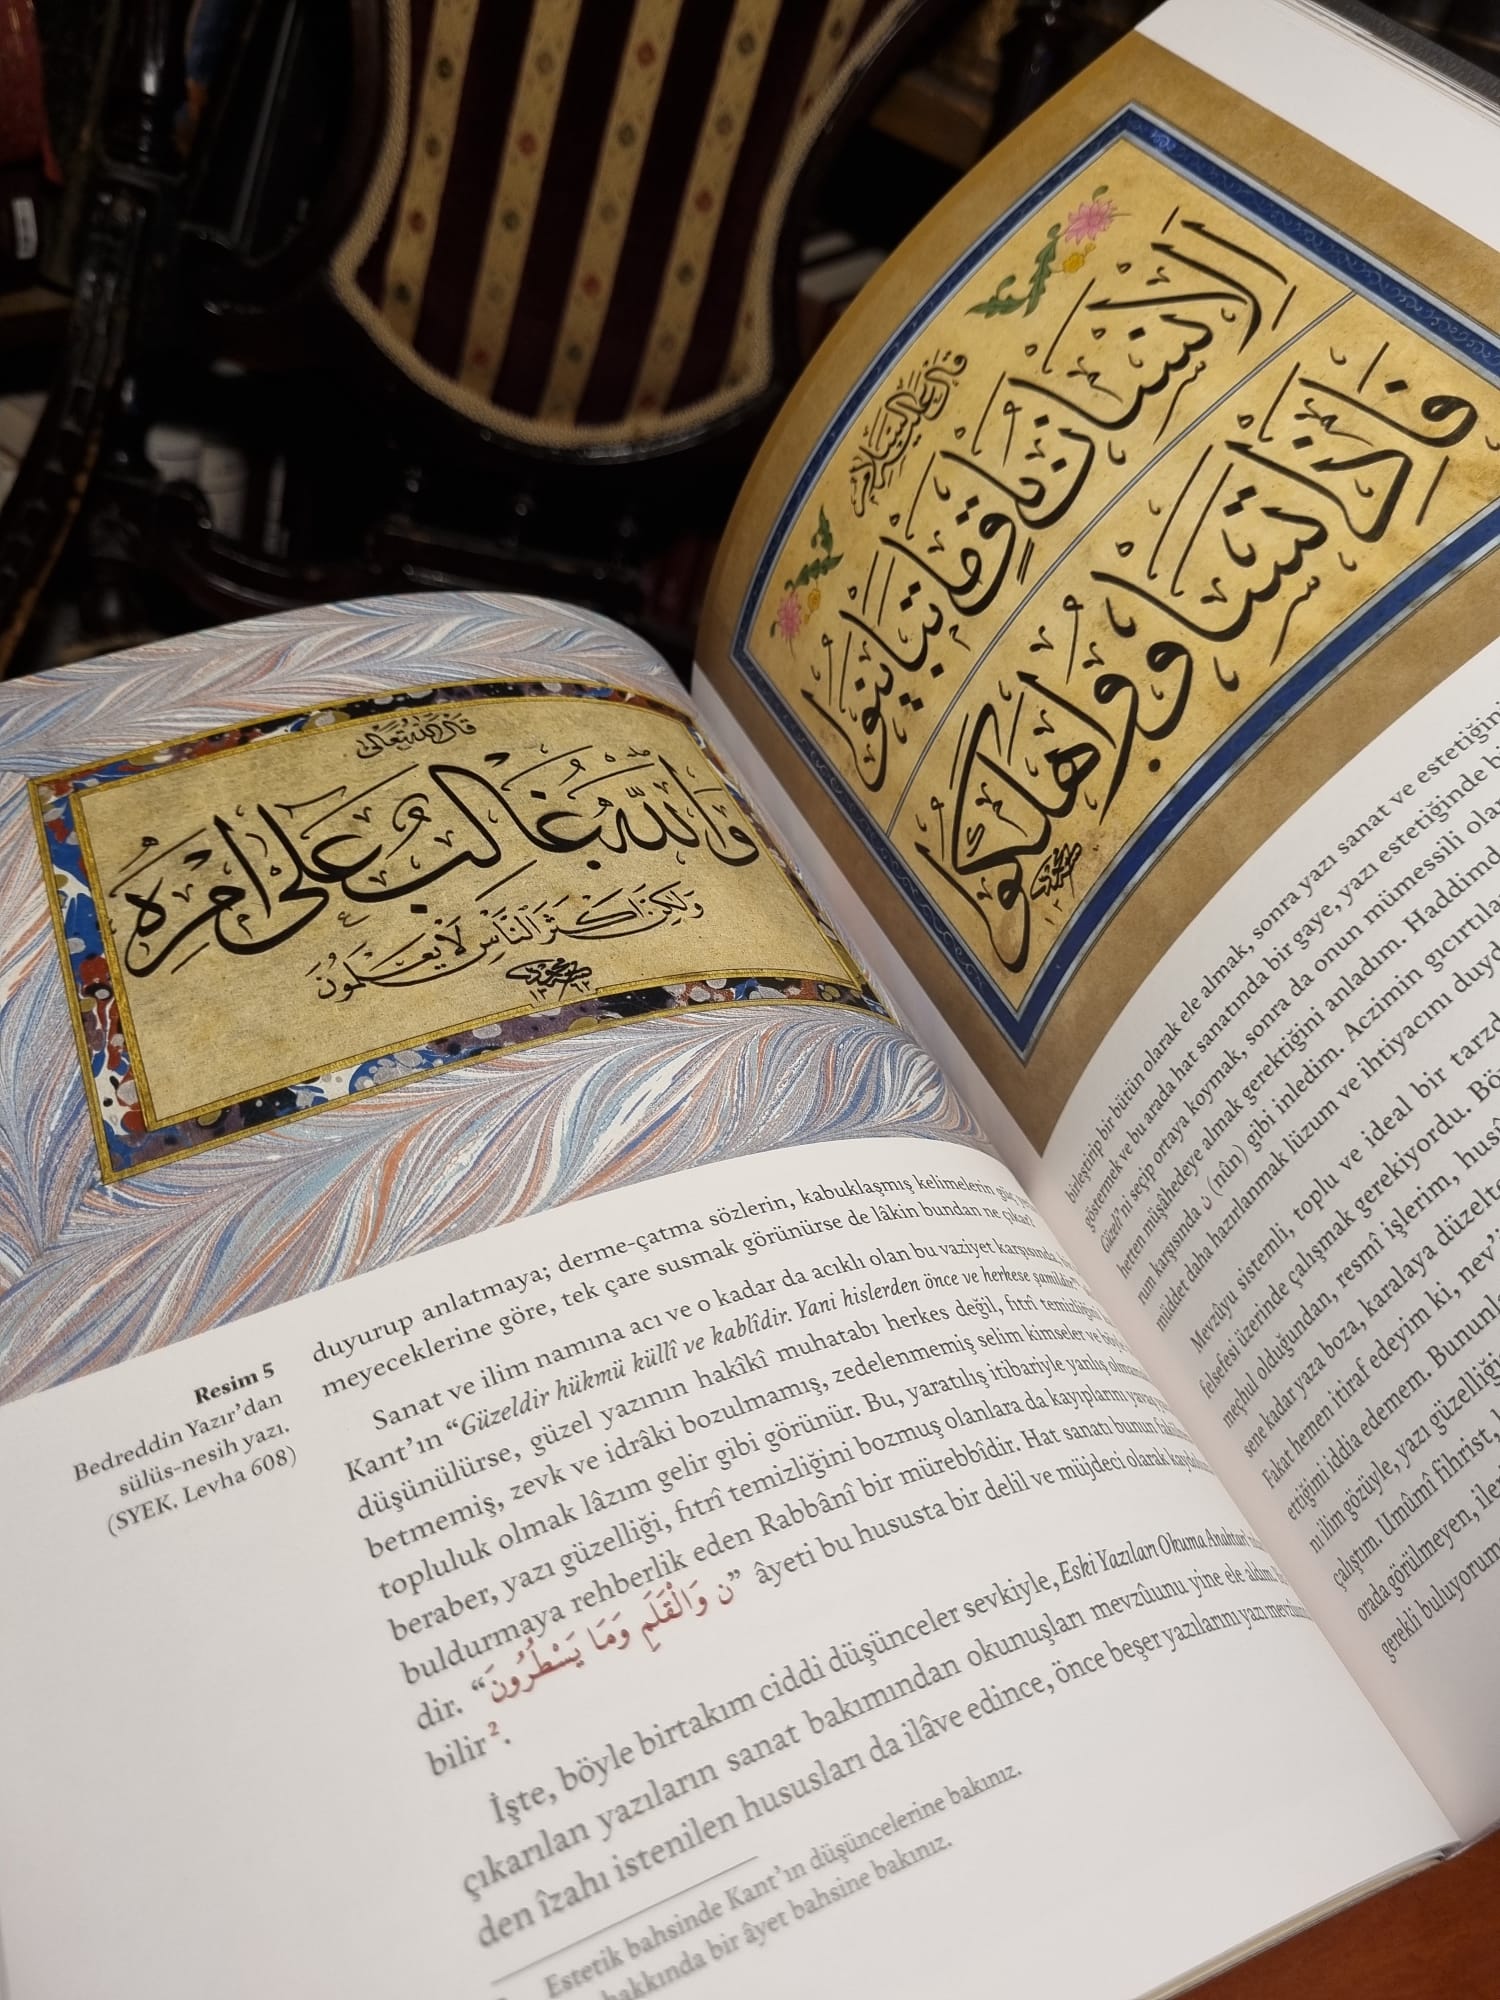 قال الله تعالى
والله غالب على امره
ولكن اكثر الناس لا يعلمون
١٣٦٣
Resim 5
Bedreddin Yazır’dan
sülüs-nesih yazı.
(SYEK. Levha 608)
duyurup anlatmaya; derme-çatma sözlerin, kabuklaşmış kelimelerin güç
meyeceklerine göre, tek çare susmak görünürse de lâkin bundan ne çıkar?
Sanat ve ilim namına acı ve o kadar da acıklı olan bu vaziyet karşısında,
Kant’ın “Güzeldir hükmü küllî ve kablîdir. Yani hislerden önce ve herkese şamildir”
düşünülürse, güzel yazının hakîkî muhatabı herkes değil, fıtrî temizliğini
betmemiş, zevk ve idrâki bozulmamış, zedelenmemiş selim kimseler ve
topluluk olmak lâzım gelir gibi görünür. Bu, yaratılış itibariyle yanlış olmamakla
beraber, yazı güzelliği, fıtrî temizliğini bozmuş olanlara da kayıplarını
buldurmaya rehberlik eden Rabbânî bir mürebbîdir. Hat sanatı bunun
dir. “ن وَالْقَلَمِ وَمَا يَسْطُرُونَ” âyeti bu hususta bir delil ve müjdeci olarak
bilir².
İşte, böyle birtakım ciddi düşünceler sevkiyle, Eski Yazıları Okuma Anahtarı
çıkarılan yazıların sanat bakımından okunuşları mevzûunu yine ele aldım.
den îzahı istenilen hususları da ilâve edince, önce beşer yazılarını yazı
Estetik bahsinde Kant’ın düşüncelerine bakınız.
hakkında bir âyet bahsine bakınız.
قال عليه السلام
الانسان ما تباينوا
فاذا تساووا هلكوا
birleştirip bir bütün olarak ele almak, sonra yazı sanat ve estetiğini
göstermek ve bu arada hat sanatında bir gaye, yazı estetiğinde
Güzeli’ni seçip ortaya koymak, sonra da onun mümessili
hetten müşâhedeye almak gerektiğini anladım. Haddimd
rum karşısında ن (nûn) gibi inledim. Aczimin gıcırtıla
müddet daha hazırlanmak lüzum ve ihtiyacını duyd
Mevzûyu sistemli, toplu ve ideal bir tarzd
felsefesi üzerinde çalışmak gerekiyordu.
meçhul olduğundan, resmî işlerim, husû
sene kadar yaza boza, karalaya düzelte
Fakat hemen itiraf edeyim ki, nev’i
ettiğimi iddia edemem. Bununla
nı ilim gözüyle, yazı güzelliği
çalıştım. Umûmî fihrist,
orada görülmeyen, iler
gerekli buluyorum